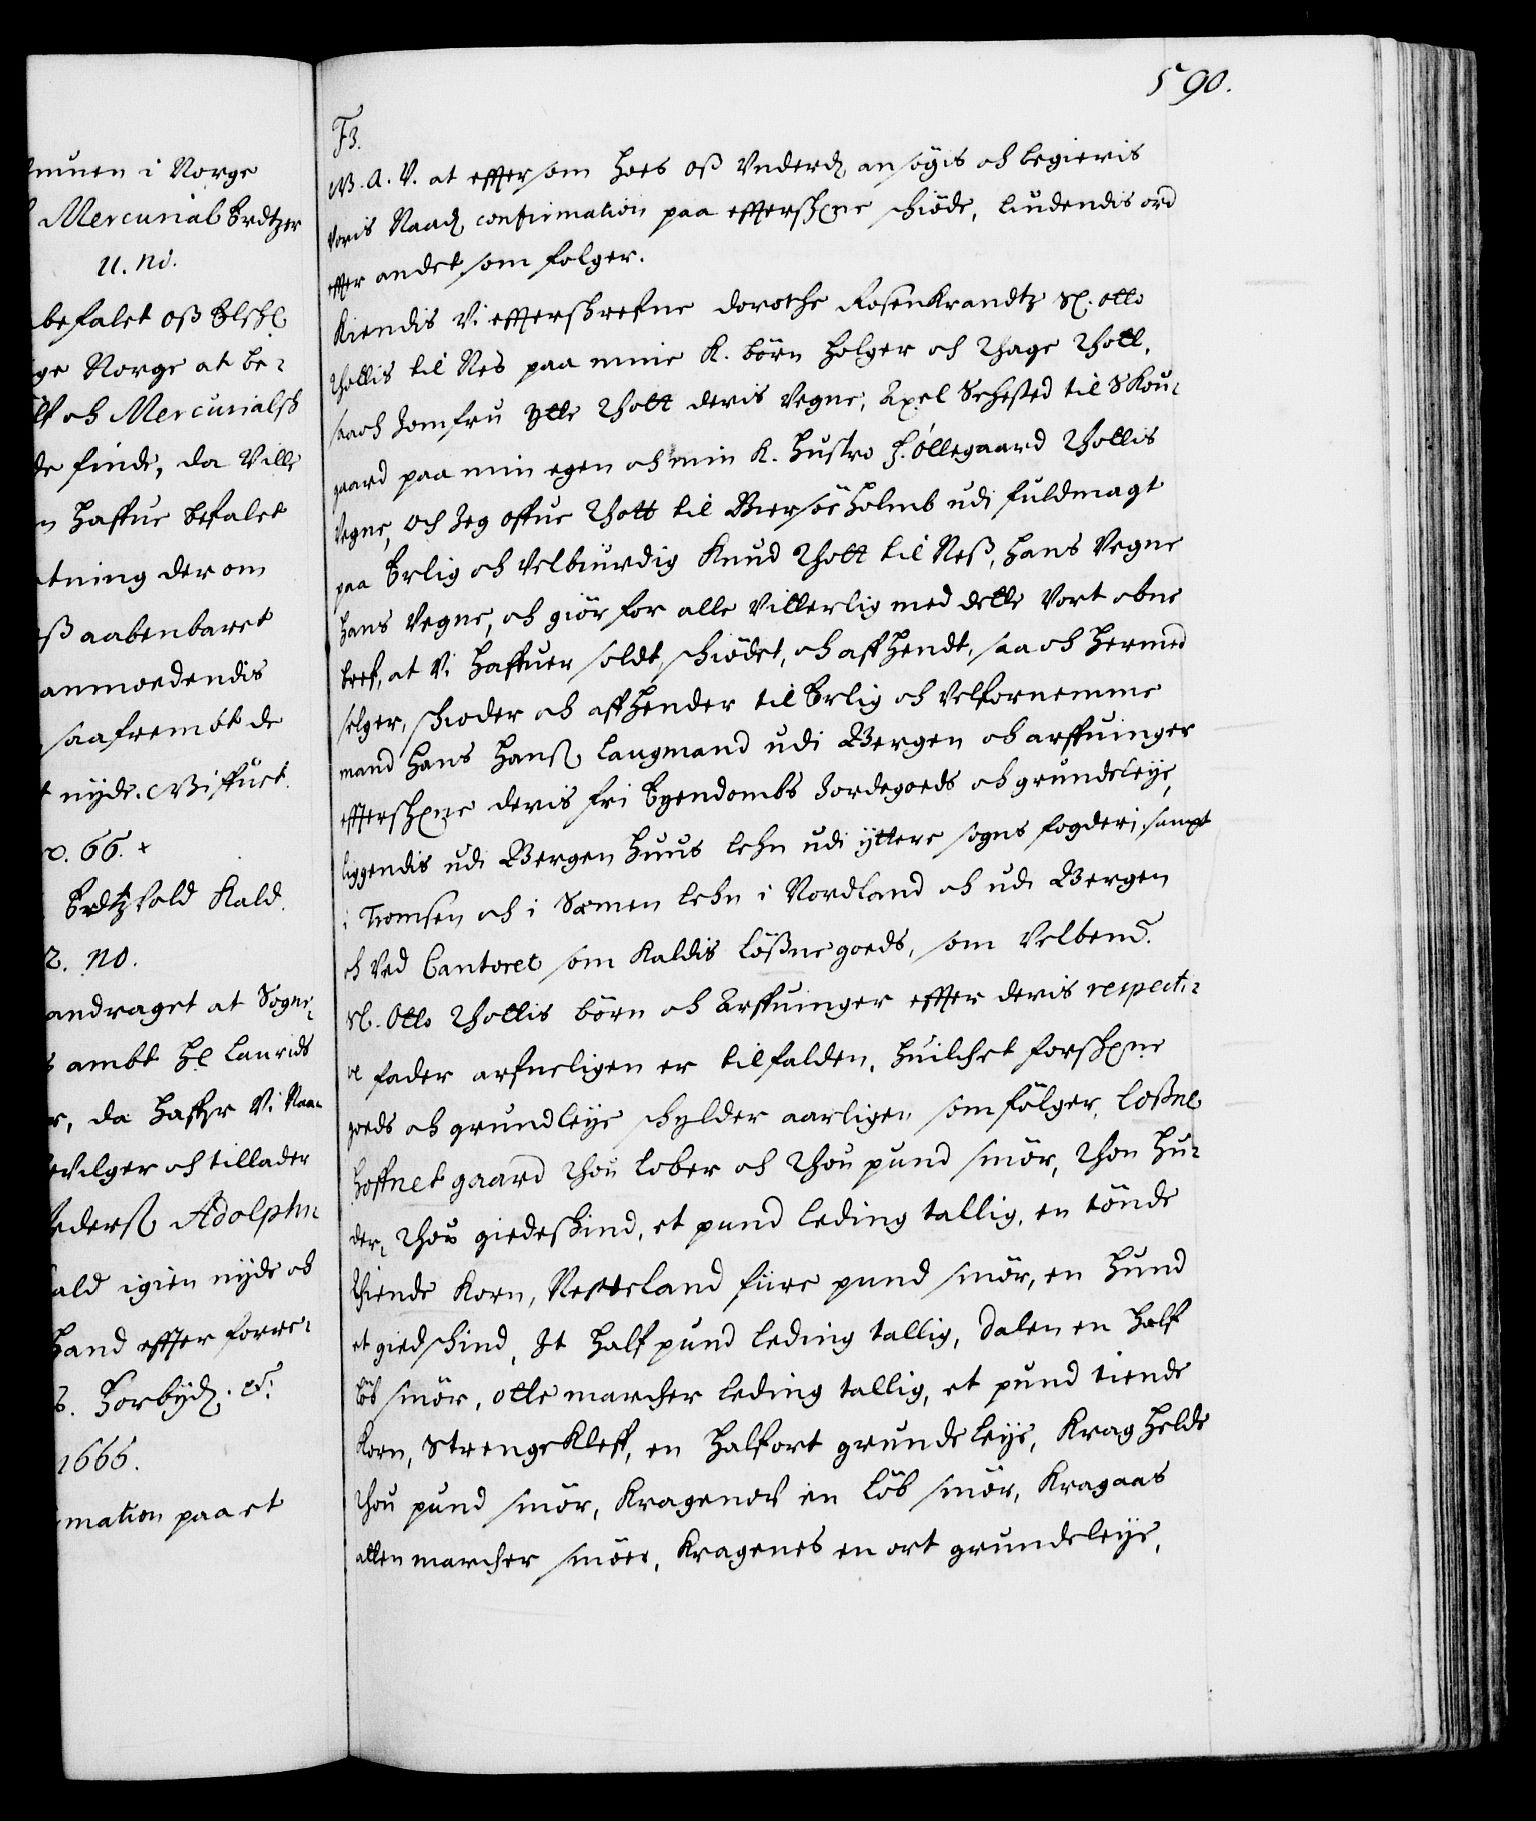 munen i Norge
Mercurial Erdtzer
11. no.
befalet oß Elschl
ge Norge at be-
lf och Mercurialsch
de finde, da Ville
n haffue befalet
tning der om
ß aabenbaret
anmoedendis
saafrembt de
t nyde. Misfuet.
o. 66. +
Erdtz sold Kald.
2. no.
andraget at Sogne-
s ambt Hl Laurids
r, da haffr Vi Naa-
evilger och tillader
ederß Adolphu
ald igien nyde och
hand effter forre-
s. Forbyd. etc:
1666.
mation paa et
590.
F3.
M. A. V. at effter som hoes oß Underd ansögis och begieris
Voris Naad confirmation paa efftersch:ne schiöde, liudendis ord
effter andet som folger.
Kiendis Vi efftterschrefne Dorothe Rosenkrandtz Sl. Otto
Thottis til Nes paa mine K. börn Holger och Thage Thott,
saa och Jomfru Ytte Thott deris Vegne, Axel Sehested til Skou-
gaard paa min egen och min K. Hustro F. Öllegaard Thottis
Vegne, och Jeg Offue Thott til Miersöe holmb udi fuldmagt
paa Erlig och Velbiurdig Knud Thott til Neß, hans Vegne
hans Vegne, och giör for alle Vitterlig med dette Vort obne
bref, at Vi haffuer soldt, schiödet, och aff hendt, saa och hermed
selger, schioder och aff hender til Erlig och Velfornemme
mand Hans Hanß Laugmand udi Bergen och arffuinger
efftersch:ne deris fri Eyendombs Jordegoeds och grundeleye,
liggendis udi Bergen Huus Lehn udi yttere sogns fogderi sampt
i Tromsen och i Somen Lehn i Nordland och udi Bergen
och Ved Cantoret som Kaldis Lößnegoeds, som Velbemt.
Sl. Otto Thottis börn och Arffuinger effter deris respecti-
ve fader arfueligen er tilfalden, huilchet forsch:ne
goeds och grundleye schylder aarligen som fölger, Loßne
Hoffnet gaard Thou Lober och Thou pund smör, Thou Hu-
der, Thou giedeskind, et pund Leding tallig, en tönde
Thiende Korn, Nesteland fiire pund smör, en Hund
et giedschind, Jt half pund Leding tallig, Dalen en half
löb smör, otte marcher Leding tallig, et pund tiende
Korn, Strengekleff, en half ort grundeleye, Kraghelde
Thou pund smör, Kragenos en Löb smör, Kragaas
atten marcher smöer, Kragenes en ort grundeleye,